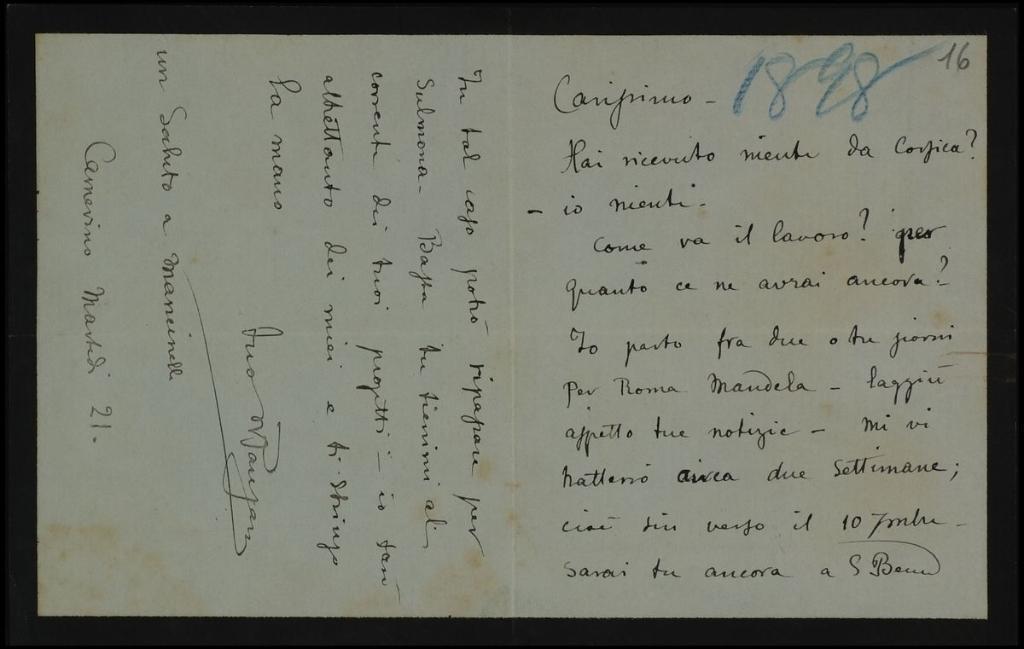 16
1898
Carissimo -
Hai ricevuto niente da Corsica?
io niente.
Come va il lavoro? per
quanto ce ne avrai ancora?
Io parto fra due o tre giorni
per Roma Mandela - laggiù
aspetto tue notizie - Mi vi
tratterrò circa due settimane;
cioè sin verso il 10 7mbre -
sarai tu ancora a S Bened
In tal caso potrò ripassare per
Sulmona - Basta tu tienimi al
corrente dei tuoi progetti - io farò
altrettanto dei miei e ti stringo
la mano
tuo
un saluto a Mancinelli
Camerino Martedì 21.